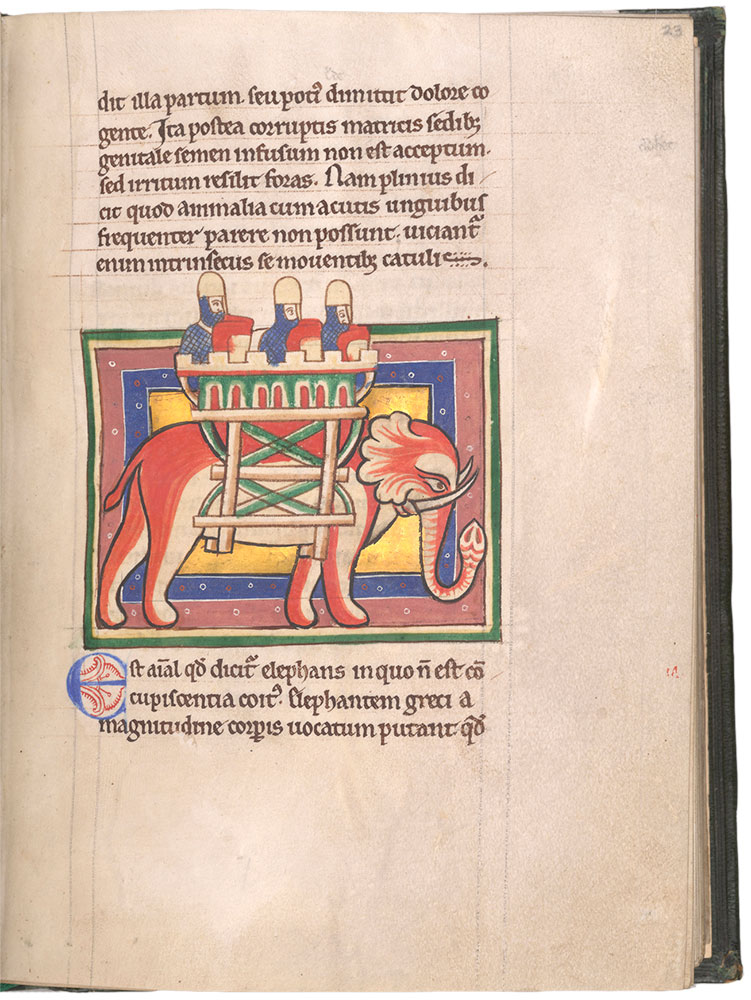 23
dit illa partum. seu poti᾽ dimittit dolore co
gente. Ita postea corruptis matricis sedibꝫ
genitale semen infusum non est acceptum.
sed irritum resilit foras. Nam plinius di
cit quod animalia cum acutis unguibus
frequenter parere non possunt. uiciant᷑
enim intrinsecus se mouentibꝫ catuli
Est aīal qđ dicit᷑ elephans in quo n̄ est cō
cupiscentia coit᾽. Elephantem greci a
magnitudine corꝑis uocatum putant qđ